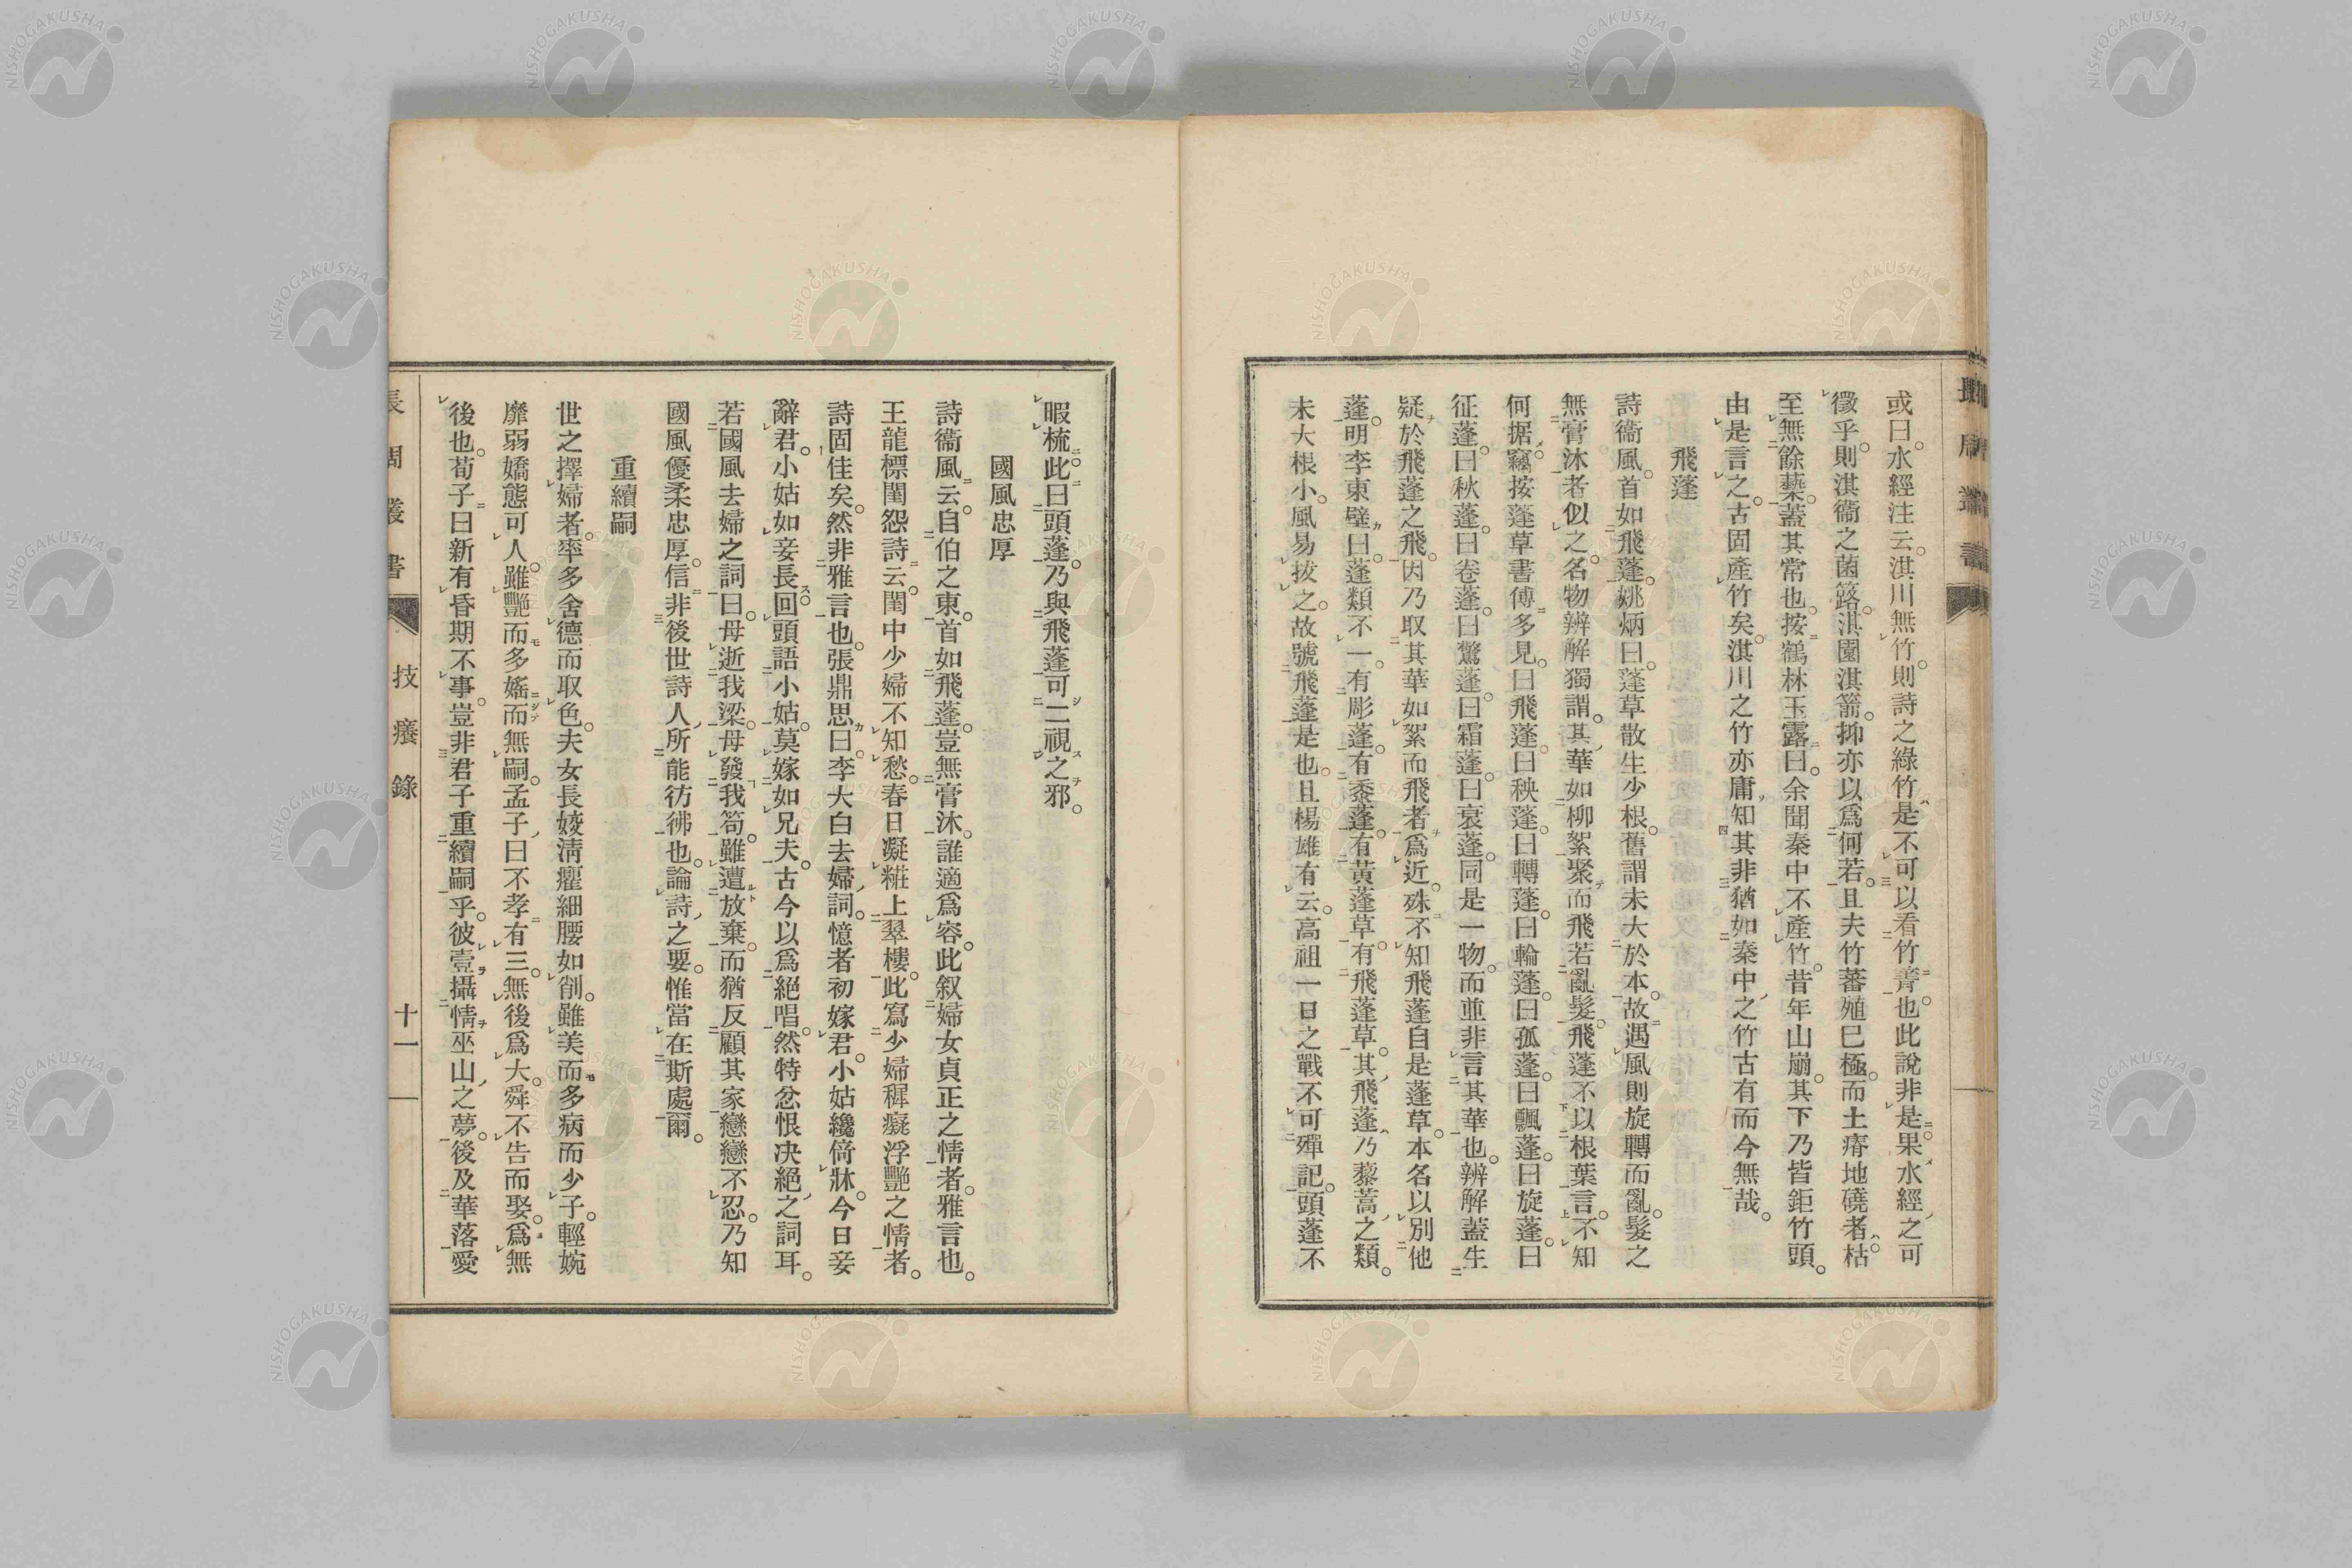 或曰。水經注云。淇川無竹。則詩之綠竹是不可以看竹菁也。此說非是。果水經之可
徵乎。則淇衞之菌簬。淇園淇箭。抑亦以爲何若。且夫竹蕃殖已極。而土瘠地磽者。枯
至無餘蘖。蓋其常也。按鶴林玉露曰。余聞秦中不產竹。昔年山崩。其下乃皆鉅竹頭。
由是言之。古固產竹矣。淇川之竹亦庸知其非猶如秦中之竹古有而今無哉。
飛蓬
詩衞風。首如飛蓬。姚炳曰。蓬草散生少根。舊謂末大於本。故遇風則旋轉而亂。髮之
無膏沐者似之。名物辨解獨謂。其華如柳絮聚而飛若亂髮。飛蓬不以根葉言。不知
何据。竊按蓬草書傳多見。曰飛蓬。曰秧蓬。曰轉蓬。曰輪蓬。曰孤蓬。曰飄蓬。曰旋蓬。曰
征蓬。曰秋蓬。曰卷蓬。曰驚蓬。曰霜蓬。曰衰蓬。同是一物。而並非言其華也。辨解蓋生
疑於飛蓬之飛。因乃取其華如絮而飛者爲近。殊不知飛蓬自是蓬草。本名以別他
蓬。明李東璧曰。蓬類不一。有彫蓬。有黍蓬。有黃蓬草。有飛蓬草。其飛蓬乃藜蒿之類。
末大根小。風易拔之。故號飛蓬是也。且楊雄有云。高祖一日之戰不可殫記。頭蓬不
暇梳。此曰頭蓬。乃與飛蓬可二視之邪。
國風忠厚
詩衞風云。自伯之東。首如飛蓬。豈無膏沐。誰適爲容。此叙婦女貞正之情者。雅言也。
王龍標閨怨詩云。閨中少婦不知愁。春日凝糚上翠樓。此寫少婦穉癡浮艷之情者。
詩固佳矣。然非雅言也。張鼎思曰。李大白去婦詞。憶者初嫁君。小姑纔倚牀。今日妾
辭君。小姑如妾長。回頭語小姑。莫嫁如兄夫。古今以爲絕唱。然特忿恨決絕之詞耳。
若國風去婦之詞曰。毋逝我梁。毋發我笱。雖遭放棄。而猶反顧其家戀戀不忍。乃知
國風優柔忠厚。信非後世詩人所能彷彿也。論詩之要。惟當在斯處爾。
重續嗣
世之擇婦者。率多舍德而取色。夫女長婈淸癯細腰如削。雖美而多病而少子。輕婉
靡弱嬌態可人。雖艷而多媱而無嗣。孟子曰不孝有三。無後爲大。舜不告而娶。爲無
後也。荀子曰新有昏期不事。豈非君子重續嗣乎。彼壹攝情巫山之夢。後及華落愛
長周叢書
技癢錄
十一